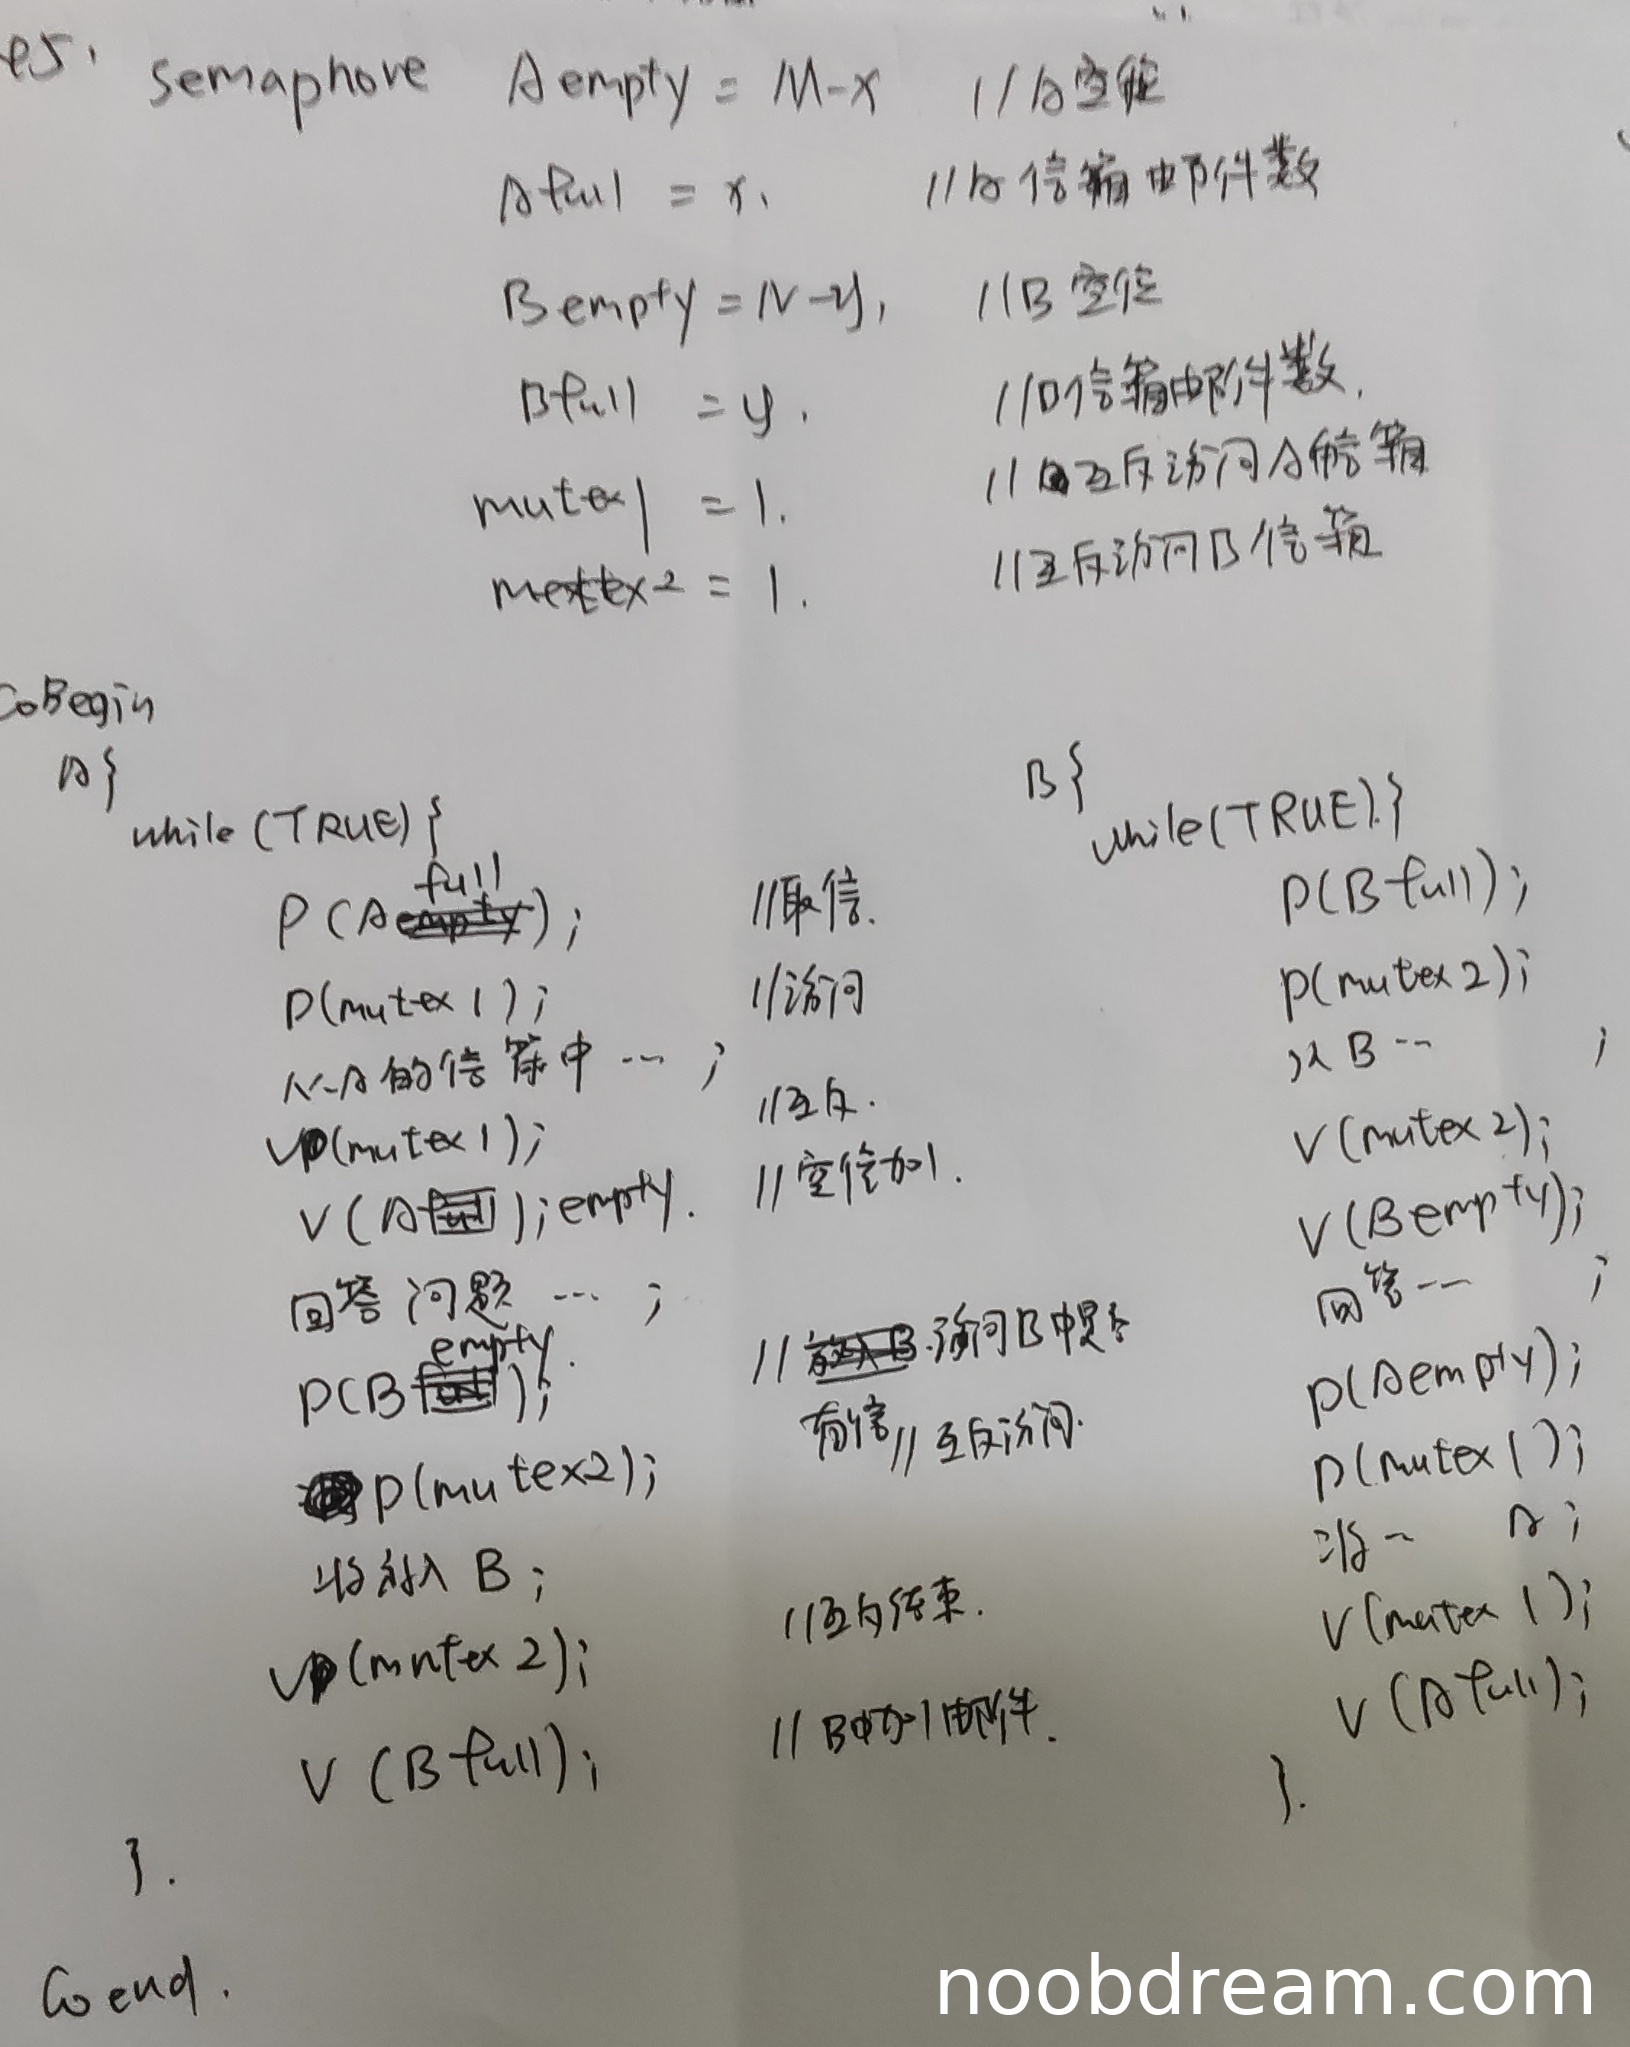 es. semaphore Aempty = M-x //A空位
Afull = x. //A信箱中邮件数
Bempty = N-y, //B空位
Bfull = y. //B信箱中邮件数.
mutex1 = 1. //互斥访问A信箱
mutex2 = 1. //互斥访问B信箱
CoBegin
A{
while(TRUE){
P(Afull); //取信.
P(mutex1); //访问
从A的信箱中 ... ;
V(mutex1); //互斥.
V(A ); empty. //空位加1.
回答问题 ... ;
P(Bempty.); // 访问B中是否
有信 // 互斥访问.
P(mutex2);
将放入 B ;
V(mutex2); //互斥结束.
V(Bfull); // B中加1邮件.
}.
B{
while(TRUE).}
P(Bfull);
P(mutex2);
从B -- ;
V(mutex2);
V(Bempty);
回答 -- ;
P(Aempty);
P(mutex1);
将 ~ A ;
V(mutex1);
V(Afull);
}.
Coend.
noobdream.com